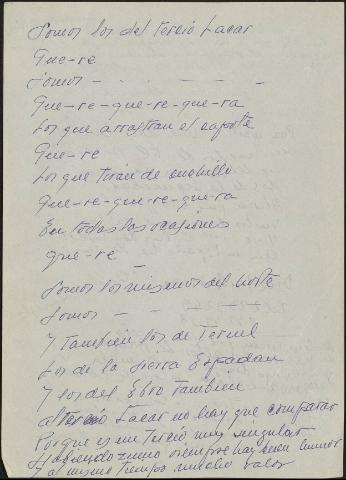 Somos los del Tercio Lacar
Que-re
Somos - - - - - -
Que-re-que-re-que-ra
Los que arrastran el capote
Que-re
Los que tiran de cuchillo
Que-re-que-re-que-ra
En todas las ocasiones
que-re
Somos los mismos del norte
Somos - - - - -
Y tambien los de Teruel
Los de la sierra Espadan
Y los del Ebro tambien
al tercio Lacar no hay que comparar
Porque es un Tercio muy singular
Habiendo zumo siempre hay buen humor
Y al mismo tiempo mucho valor